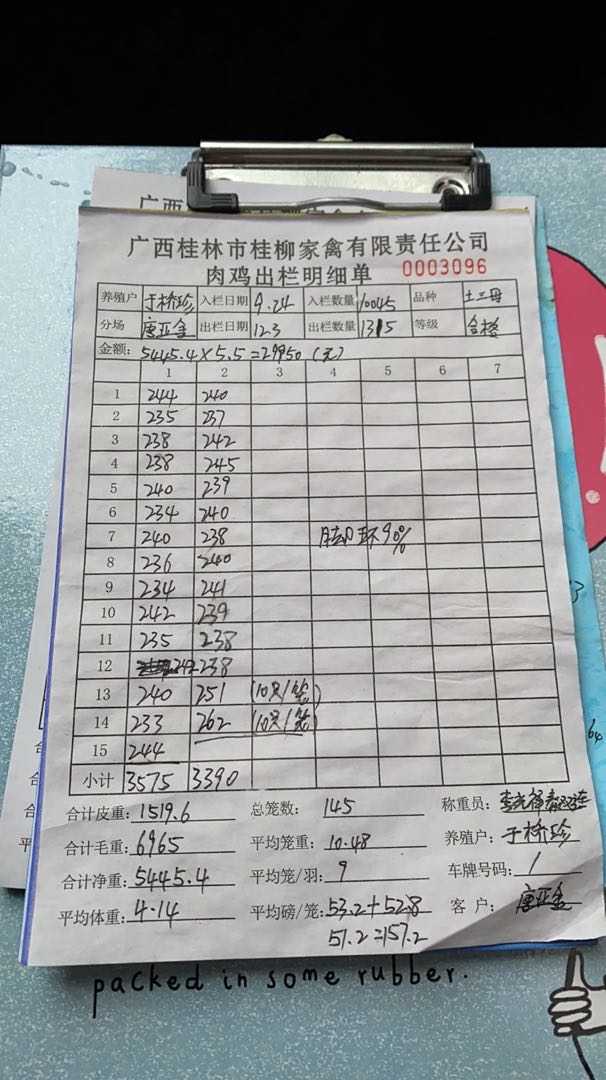 广西桂林市桂柳家禽有限责任公司
肉鸡出栏明细单 0003096
养殖户 于桥珍 入栏日期 9.24 入栏数量 10045 品种 土三母
分场 唐亚金 出栏日期 12.3 出栏数量 1315 等级 合格
金额: 5445.4×5.5=29950(元)
1 2 3 4 5 6 7
1 244 240
2 235 237
3 238 242
4 238 245
5 240 239
6 234 240
7 240 238 脚环90%
8 236 240
9 234 241
10 242 239
11 235 238
12 242 238
13 240 251 (10只/笼)
14 233 262 (10只/笼)
15 244
小计 3575 3390
合计皮重: 1519.6 总笼数: 145 称重员:
合计毛重: 6965 平均笼重: 10.48 养殖户: 于桥珍
合计净重: 5445.4 平均笼/羽: 9 车牌号码: 1
平均体重: 4.14 平均磅/笼: 53.2+52.8 客户: 唐亚金
51.2=157.2
packed in some rubber.